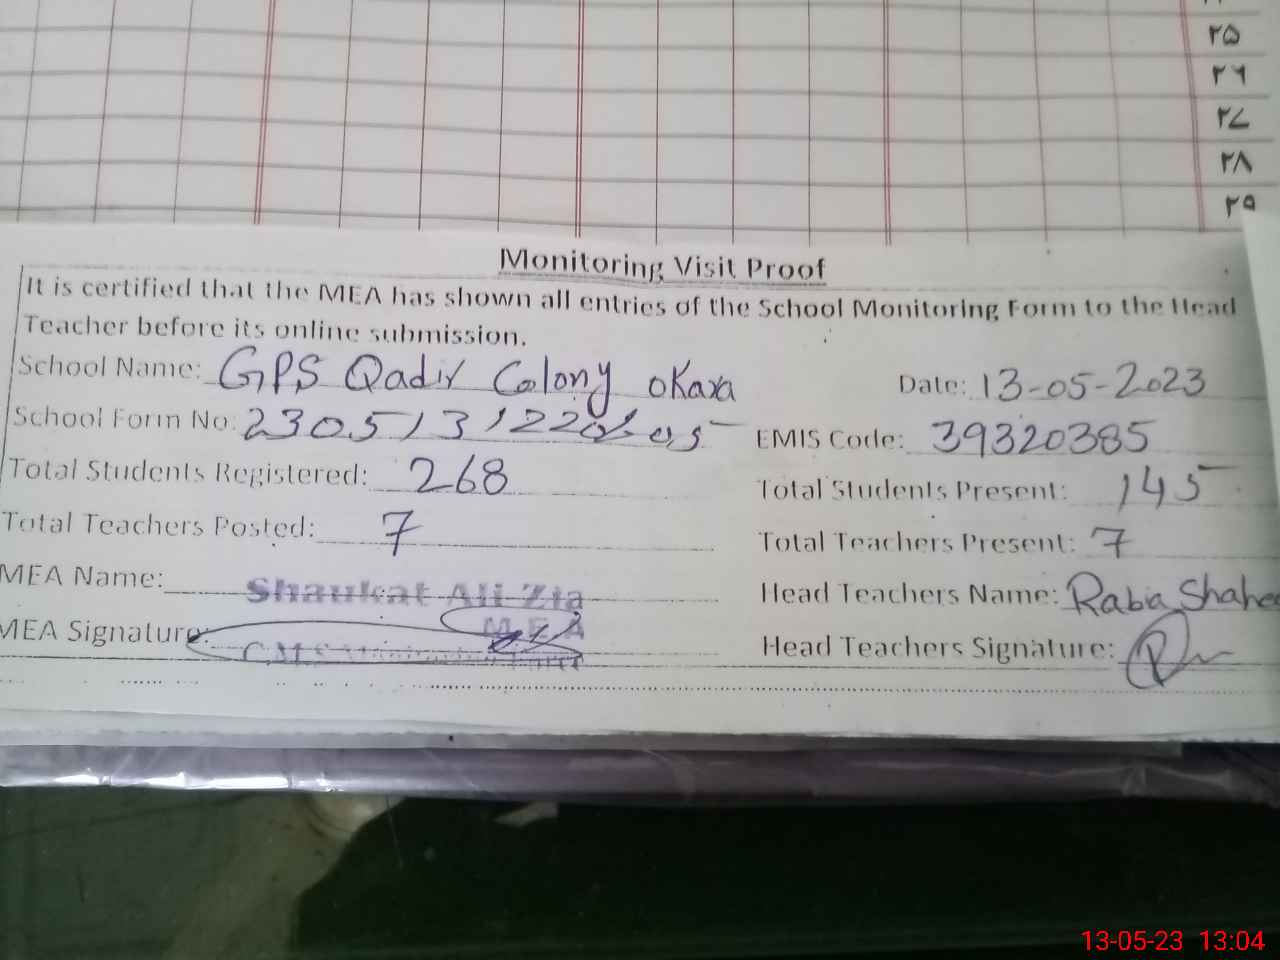 ۲۵
۲۶
۲۷
۲۸
۲۹
Monitoring Visit Proof
It is certified that the MEA has shown all entries of the School Monitoring Form to the Head
Teacher before its online submission.
School Name: GPS Qadir Colony oKara Date: 13-05-2023
School Form No: EMIS Code: 39320385
Total Students Registered: 268 Total Students Present: 145
Total Teachers Posted: 7 Total Teachers Present: 7
MEA Name: Shaukat Ali Zia Head Teachers Name: Rabia Shahee
MEA Signature: M.E.A Head Teachers Signature:
13-05-23 13:04